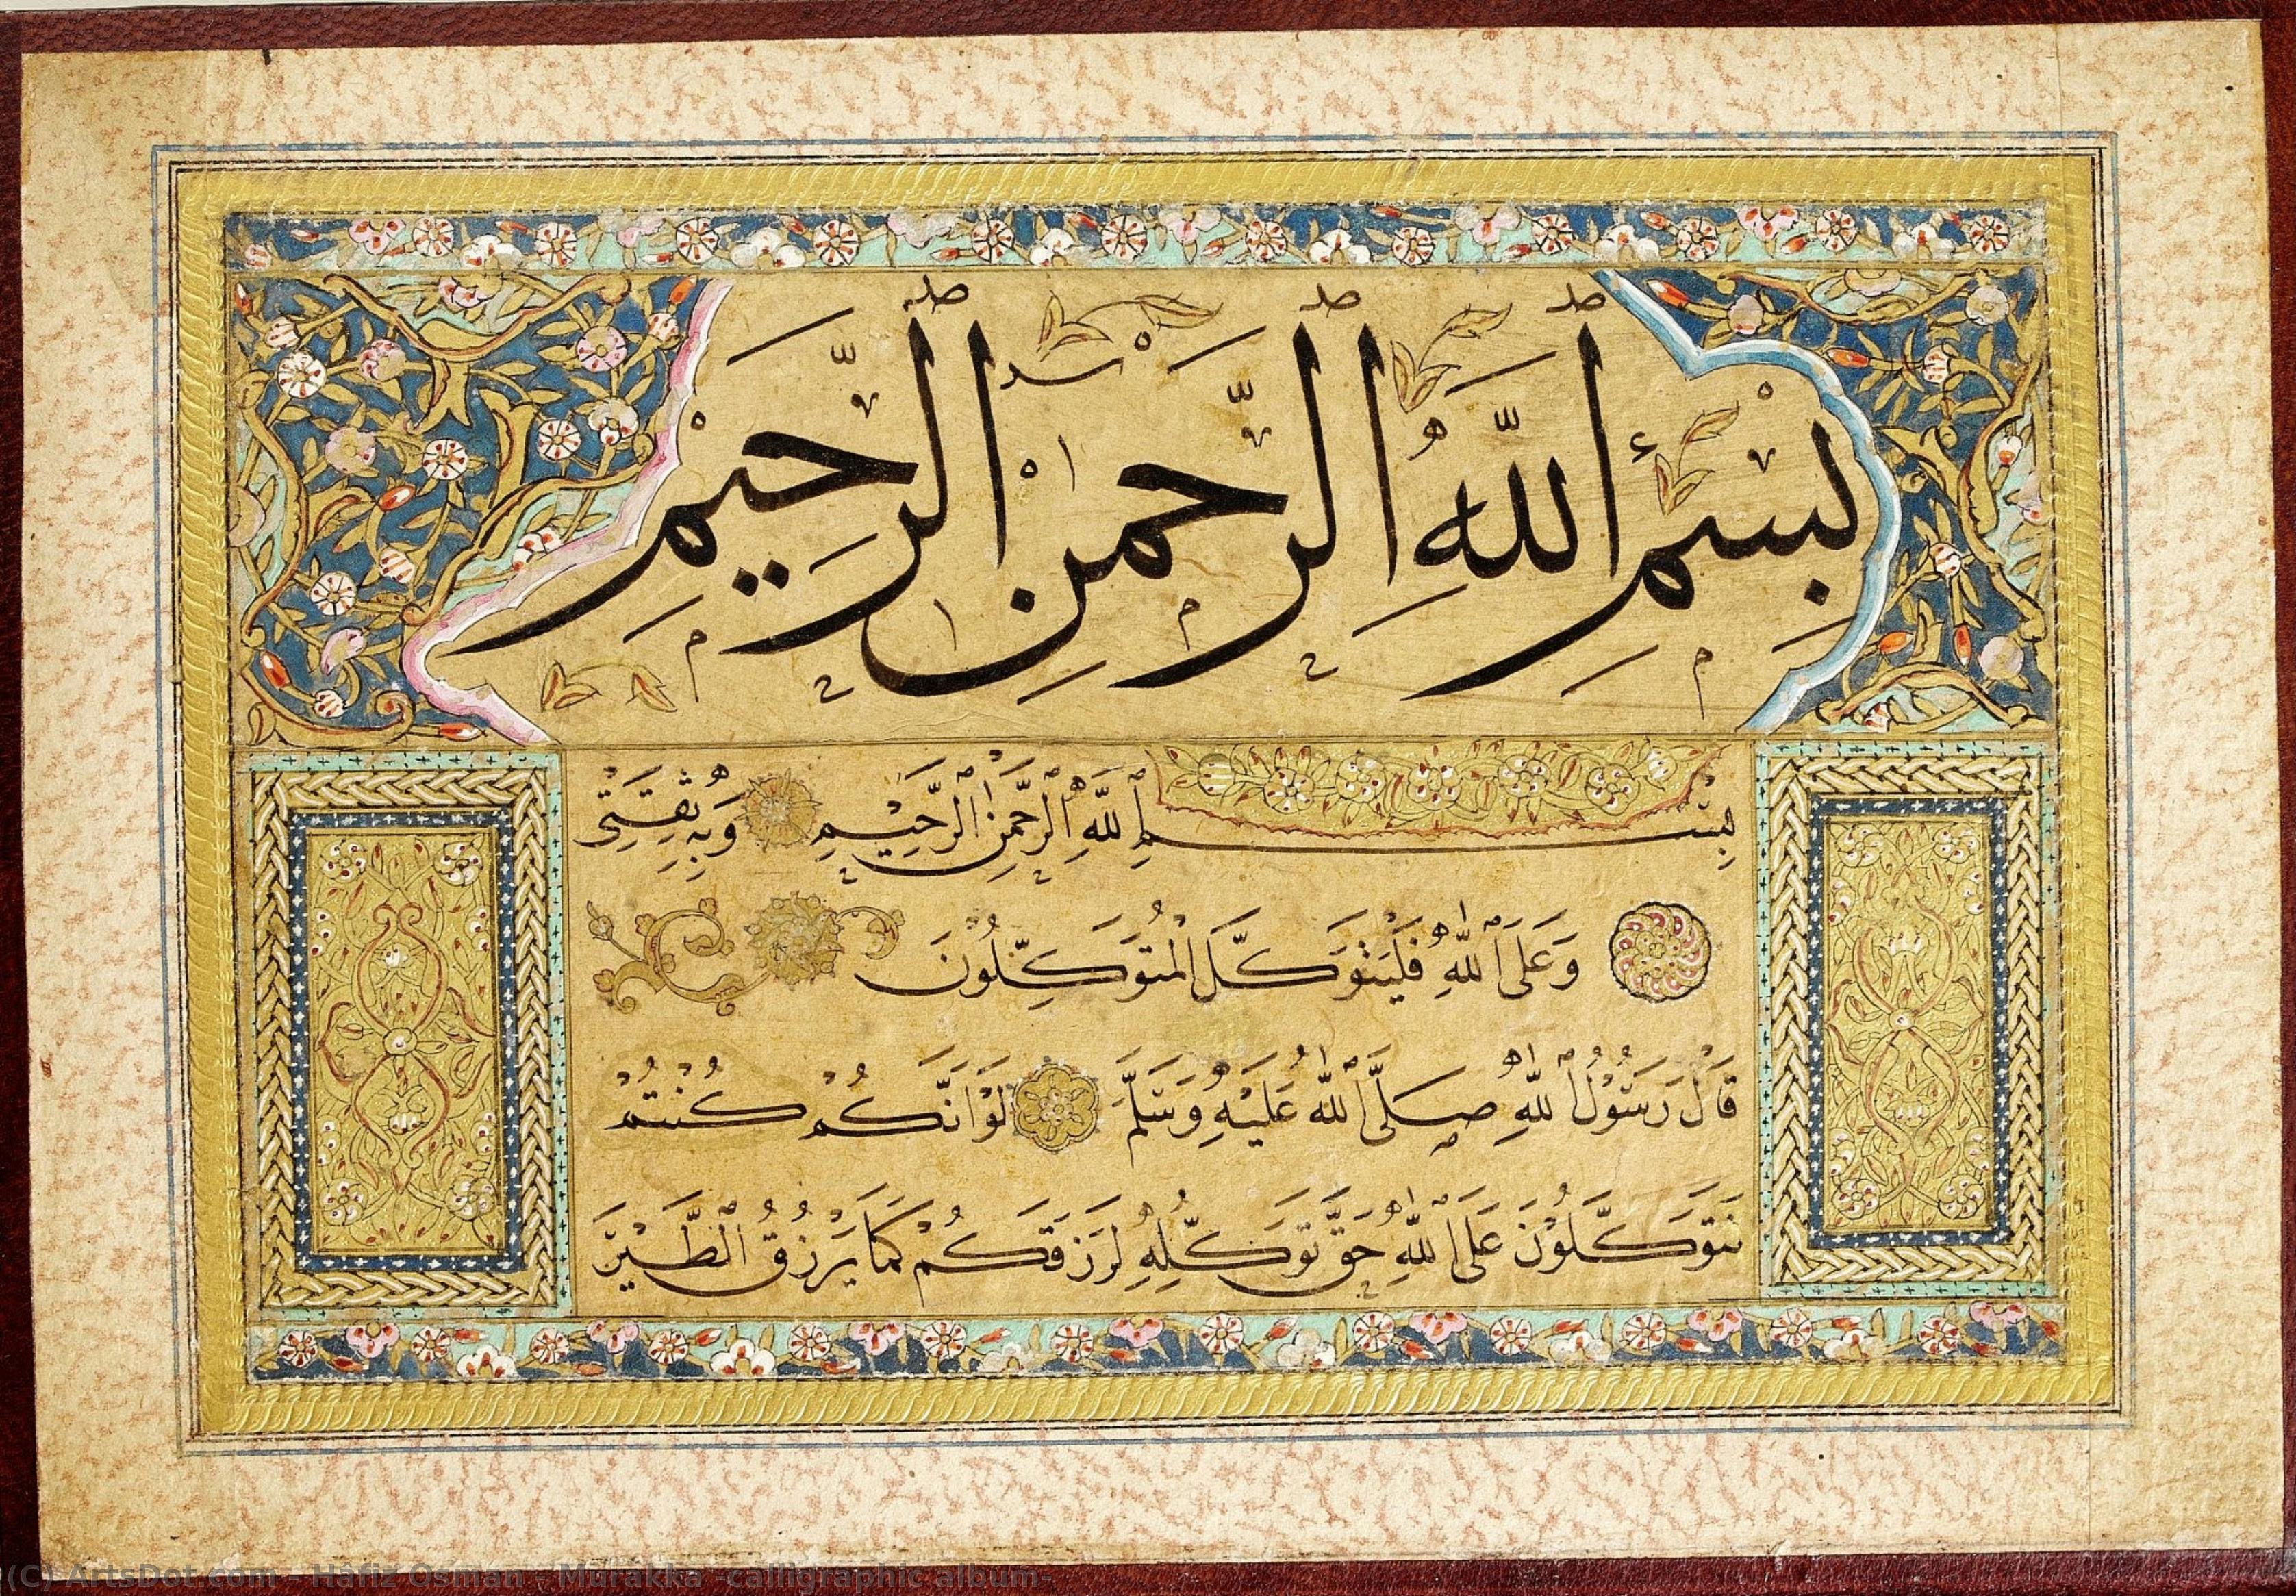 بِسْمِ اللَّهِ الرَّحْمٰنِ الرَّحِيمِ
بِسْمِ اللَّهِ الرَّحْمٰنِ الرَّحِيْمِ وَبِهِ ثِقَتِي
وَعَلَى اللهِ فَلْيَتَوَكَّلِ الْمُتَوَكِّلُونَ
قَالَ رَسُوْلُ اللهِ صَلَّى اللهُ عَلَيْهِ وَسَلَّمَ لَوْ اَنَّكُمْ كُنْتُمْ
تَتَوَكَّلُوْنَ عَلَى اللهِ حَقَّ تَوَكُّلِهِ لَرَزَقَكُمْ كَمَا يَرْزُقُ الطَّيْرَ
(C) ArtsDot.com - Hafiz Osman - Murakka -calligraphic album-